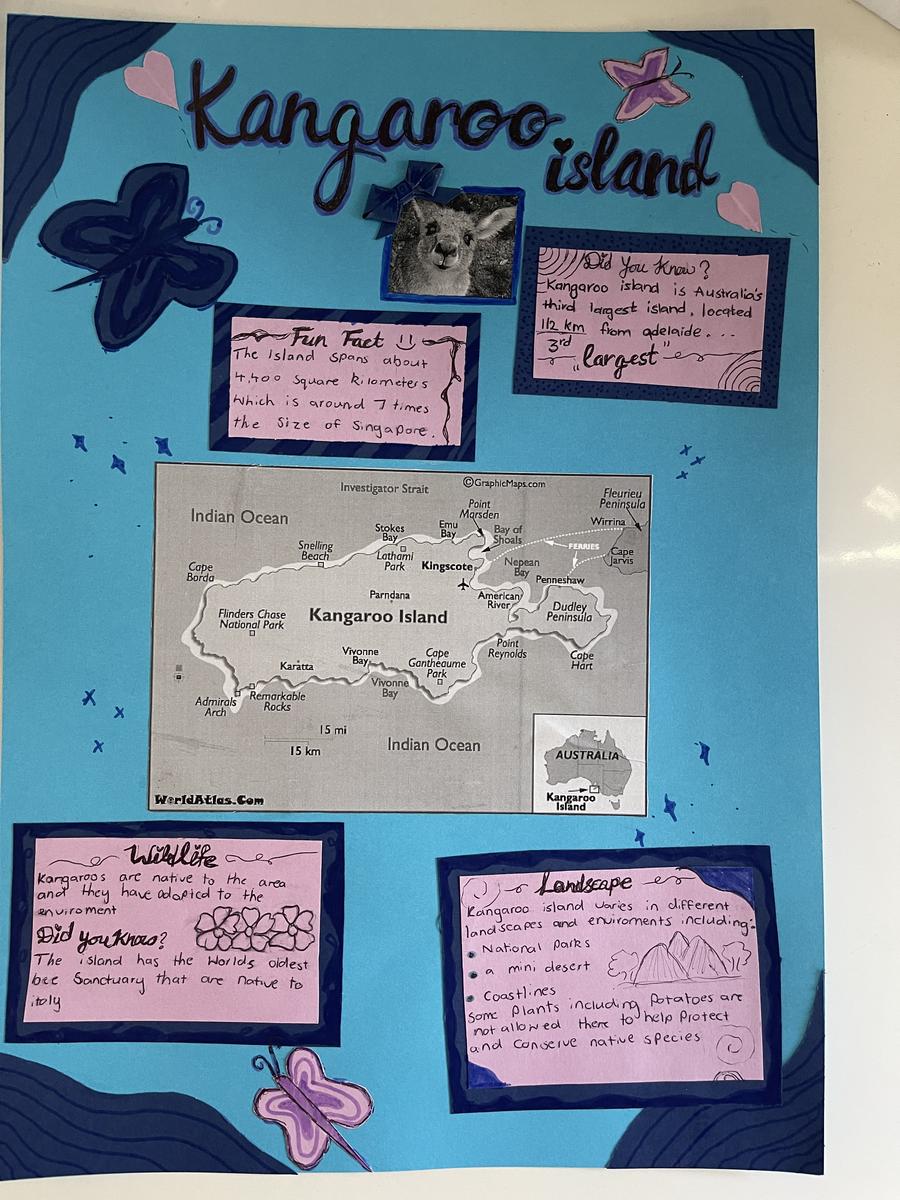 Kangaroo
island
Did You Know?
Kangaroo island is Australia's
third largest island, located
112 km from adelaide...
3rd
"largest"
Fun Fact !!
The Island spans about
4,400 square kilometers
which is around 7 times
the size of Singapore.
©GraphicMaps.com
Investigator Strait
Indian Ocean
Point
Marsden
Fleurieu
Peninsula
Wirrina
Emu
Bay
Bay of
Shoals
Stokes
Bay
FERRIES
Snelling
Beach
Latham
Park
Cape
Jarvis
Kingscote
Nepean
Bay
Cape
Borda
Penneshaw
Parndana
American
River
Flinders Chase
National Park
Kangaroo Island
Dudley
Peninsula
Vivonne
Bay
Cape
Gantheaume
Park
Point
Reynolds
Cape
Hart
Karatta
Vivonne
Bay
Admirals
Arch
Remarkable
Rocks
15 mi
15 km
Indian Ocean
AUSTRALIA
Kangaroo
Island
WorldAtlas.Com
Wildlife
Kangaroos are native to the area
and they have adapted to the
enviroment
Did you know?
The island has the worlds oldest
bee Sanctuary that are native to
italy
Landscape
Kangaroo island varies in different
landscapes and enviroments including:
• National Parks
• a mini desert
• Coastlines
Some Plants including Potatoes are
not allowed there to help Protect
and conserve native species